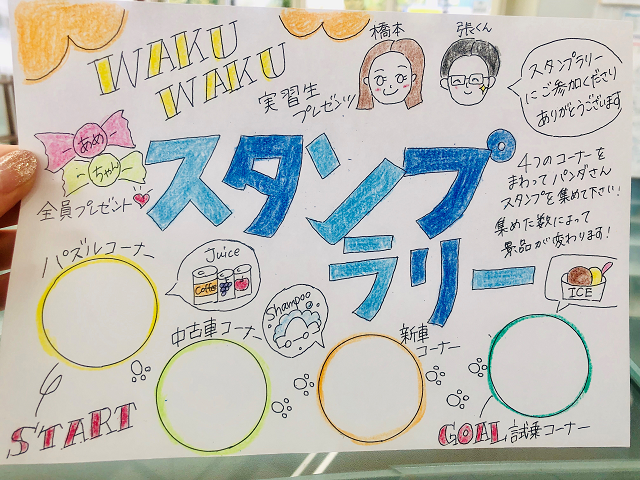 WAKU
WAKU
実習生
プレゼンツ!!
橋本
張くん
スタンプラリー
にご参加くださり
ありがとうございます
あめ
ちゃん
全員プレゼント
スタンプ
ラリー
4つのコーナーを
まわってパンダさん
スタンプを集めて下さい!
集めた数によって
景品が変わります!
パズルコーナー
Juice
Coffee
中古車コーナー
Shampoo
新車
コーナー
ICE
START
GOAL 試乗コーナー